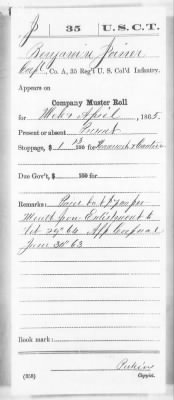 J 35 U.S.C.T.
Benjamin Joiner
Corpl, Co. A, 35 Reg't U. S. Col'd Infantry.
Appears on
Company Muster Roll
for Mch & April, 1865.
Present or absent Present
Stoppage, $ 1 13/100 for Haversack & Canteen
Due Gov't, $ 100 for
Remarks: Paid to at $7 00 per
Month from Enlistment to
29" 64 App Corporal
June 30" 63
Book mark:
Perkins
(358) Copyist.